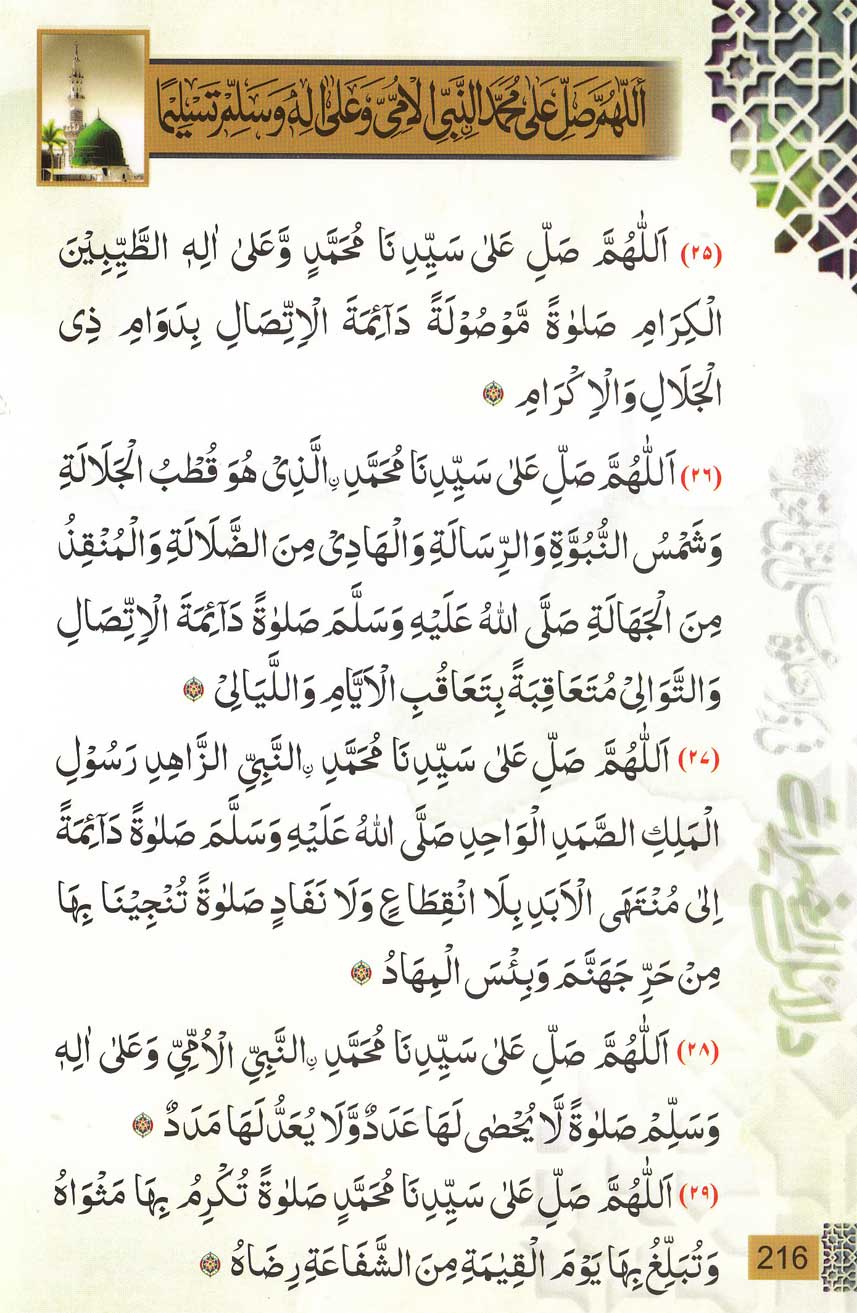 أَللّٰهُمَّ صَلِّ عَلٰى مُحَمَّدِ النَّبِيِّ الْاُمِّيِّ وَعَلٰى اٰلِهٖ وَسَلِّمْ تَسْلِيْمًا
(۲۵) اَللّٰهُمَّ صَلِّ عَلٰى سَيِّدِنَا مُحَمَّدٍ وَّعَلٰى اٰلِهِ الطَّيِّبِيْنَ
الْكِرَامِ صَلٰوةً مَّوْصُوْلَةً دَآئِمَةَ الْاِتِّصَالِ بِدَوَامِ ذِى
الْجَلَالِ وَالْاِكْرَامِ
(۲۶) اَللّٰهُمَّ صَلِّ عَلٰى سَيِّدِنَا مُحَمَّدِ ۨالَّذِىْ هُوَ قُطْبُ الْجَلَالَةِ
وَشَمْسُ النُّبُوَّةِ وَالرِّسَالَةِ وَالْهَادِىْ مِنَ الضَّلَالَةِ وَالْمُنْقِذُ
مِنَ الْجَهَالَةِ صَلَّى اللهُ عَلَيْهِ وَسَلَّمَ صَلٰوةً دَآئِمَةَ الْاِتِّصَالِ
وَالتَّوَالِىْ مُتَعَاقِبَةً بِتَعَاقُبِ الْاَيَّامِ وَاللَّيَالِىْ
(۲۷) اَللّٰهُمَّ صَلِّ عَلٰى سَيِّدِنَا مُحَمَّدِ ۨالنَّبِيِّ الزَّاهِدِ رَسُوْلِ
الْمَلِكِ الصَّمَدِ الْوَاحِدِ صَلَّى اللهُ عَلَيْهِ وَسَلَّمَ صَلٰوةً دَآئِمَةً
اِلٰى مُنْتَهَى الْاَبَدِ بِلَا انْقِطَاعٍ وَلَا نَفَادٍ صَلٰوةً تُنْجِيْنَا بِهَا
مِنْ حَرِّ جَهَنَّمَ وَبِئْسَ الْمِهَادُ
(۲۸) اَللّٰهُمَّ صَلِّ عَلٰى سَيِّدِنَا مُحَمَّدِ ۨالنَّبِيِّ الْاُمِّيِّ وَعَلٰى اٰلِهٖ
وَسَلِّمْ صَلٰوةً لَّا يُحْصٰى لَهَا عَدَدٌ وَّلَا يُعَدُّ لَهَا مَدَدٌ
(۲۹) اَللّٰهُمَّ صَلِّ عَلٰى سَيِّدِنَا مُحَمَّدٍ صَلٰوةً تُكْرِمُ بِهَا مَثْوَاهُ
وَتُبَلِّغُ بِهَا يَوْمَ الْقِيٰمَةِ مِنَ الشَّفَاعَةِ رِضَاهُ
216